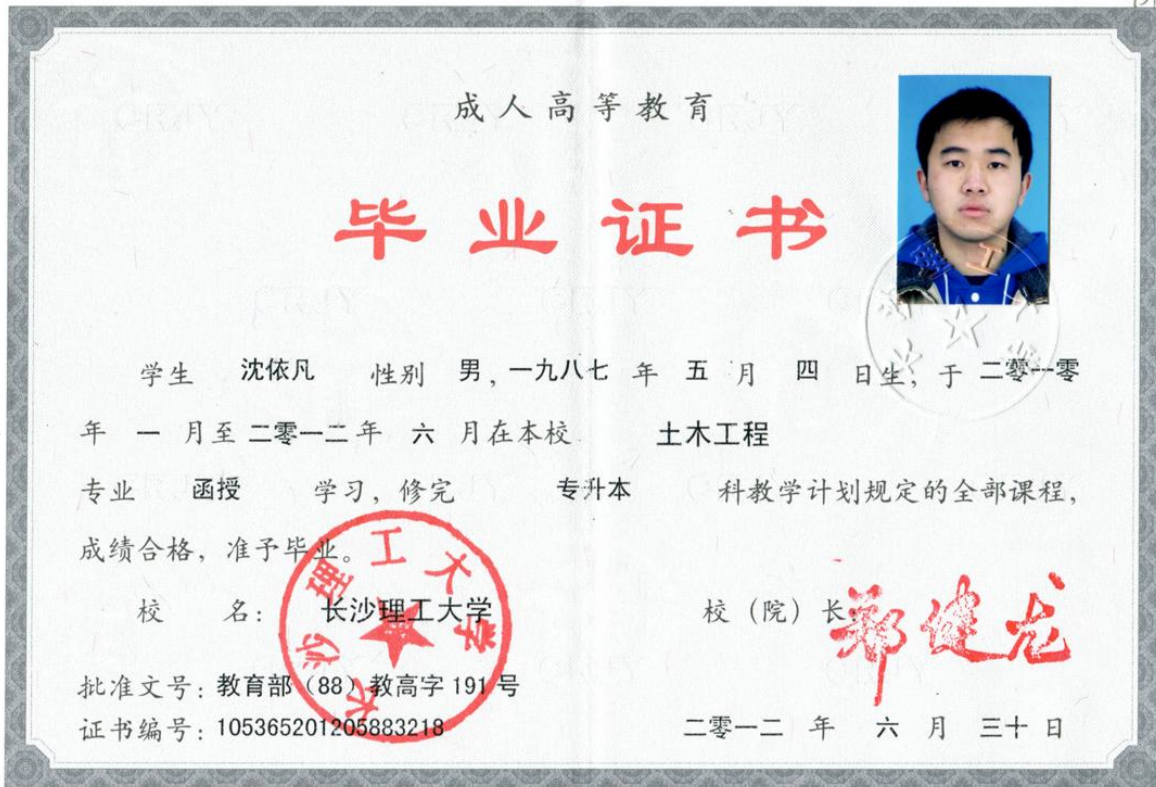 成人高等教育
毕业证书
学生 沈依凡 性别 男，一九八七 年 五 月 四 日生，于 二零一零
年 一 月至 二零一二 年 六 月在本校 土木工程
专业 函授 学习，修完 专升本 科教学计划规定的全部课程，
成绩合格，准予毕业。
校 名： 长沙理工大学 校（院）长 郑健龙
长沙理工大学
批准文号：教育部（88）教高字 191 号
证书编号：105365201205883218 二零一二 年 六 月 三十 日